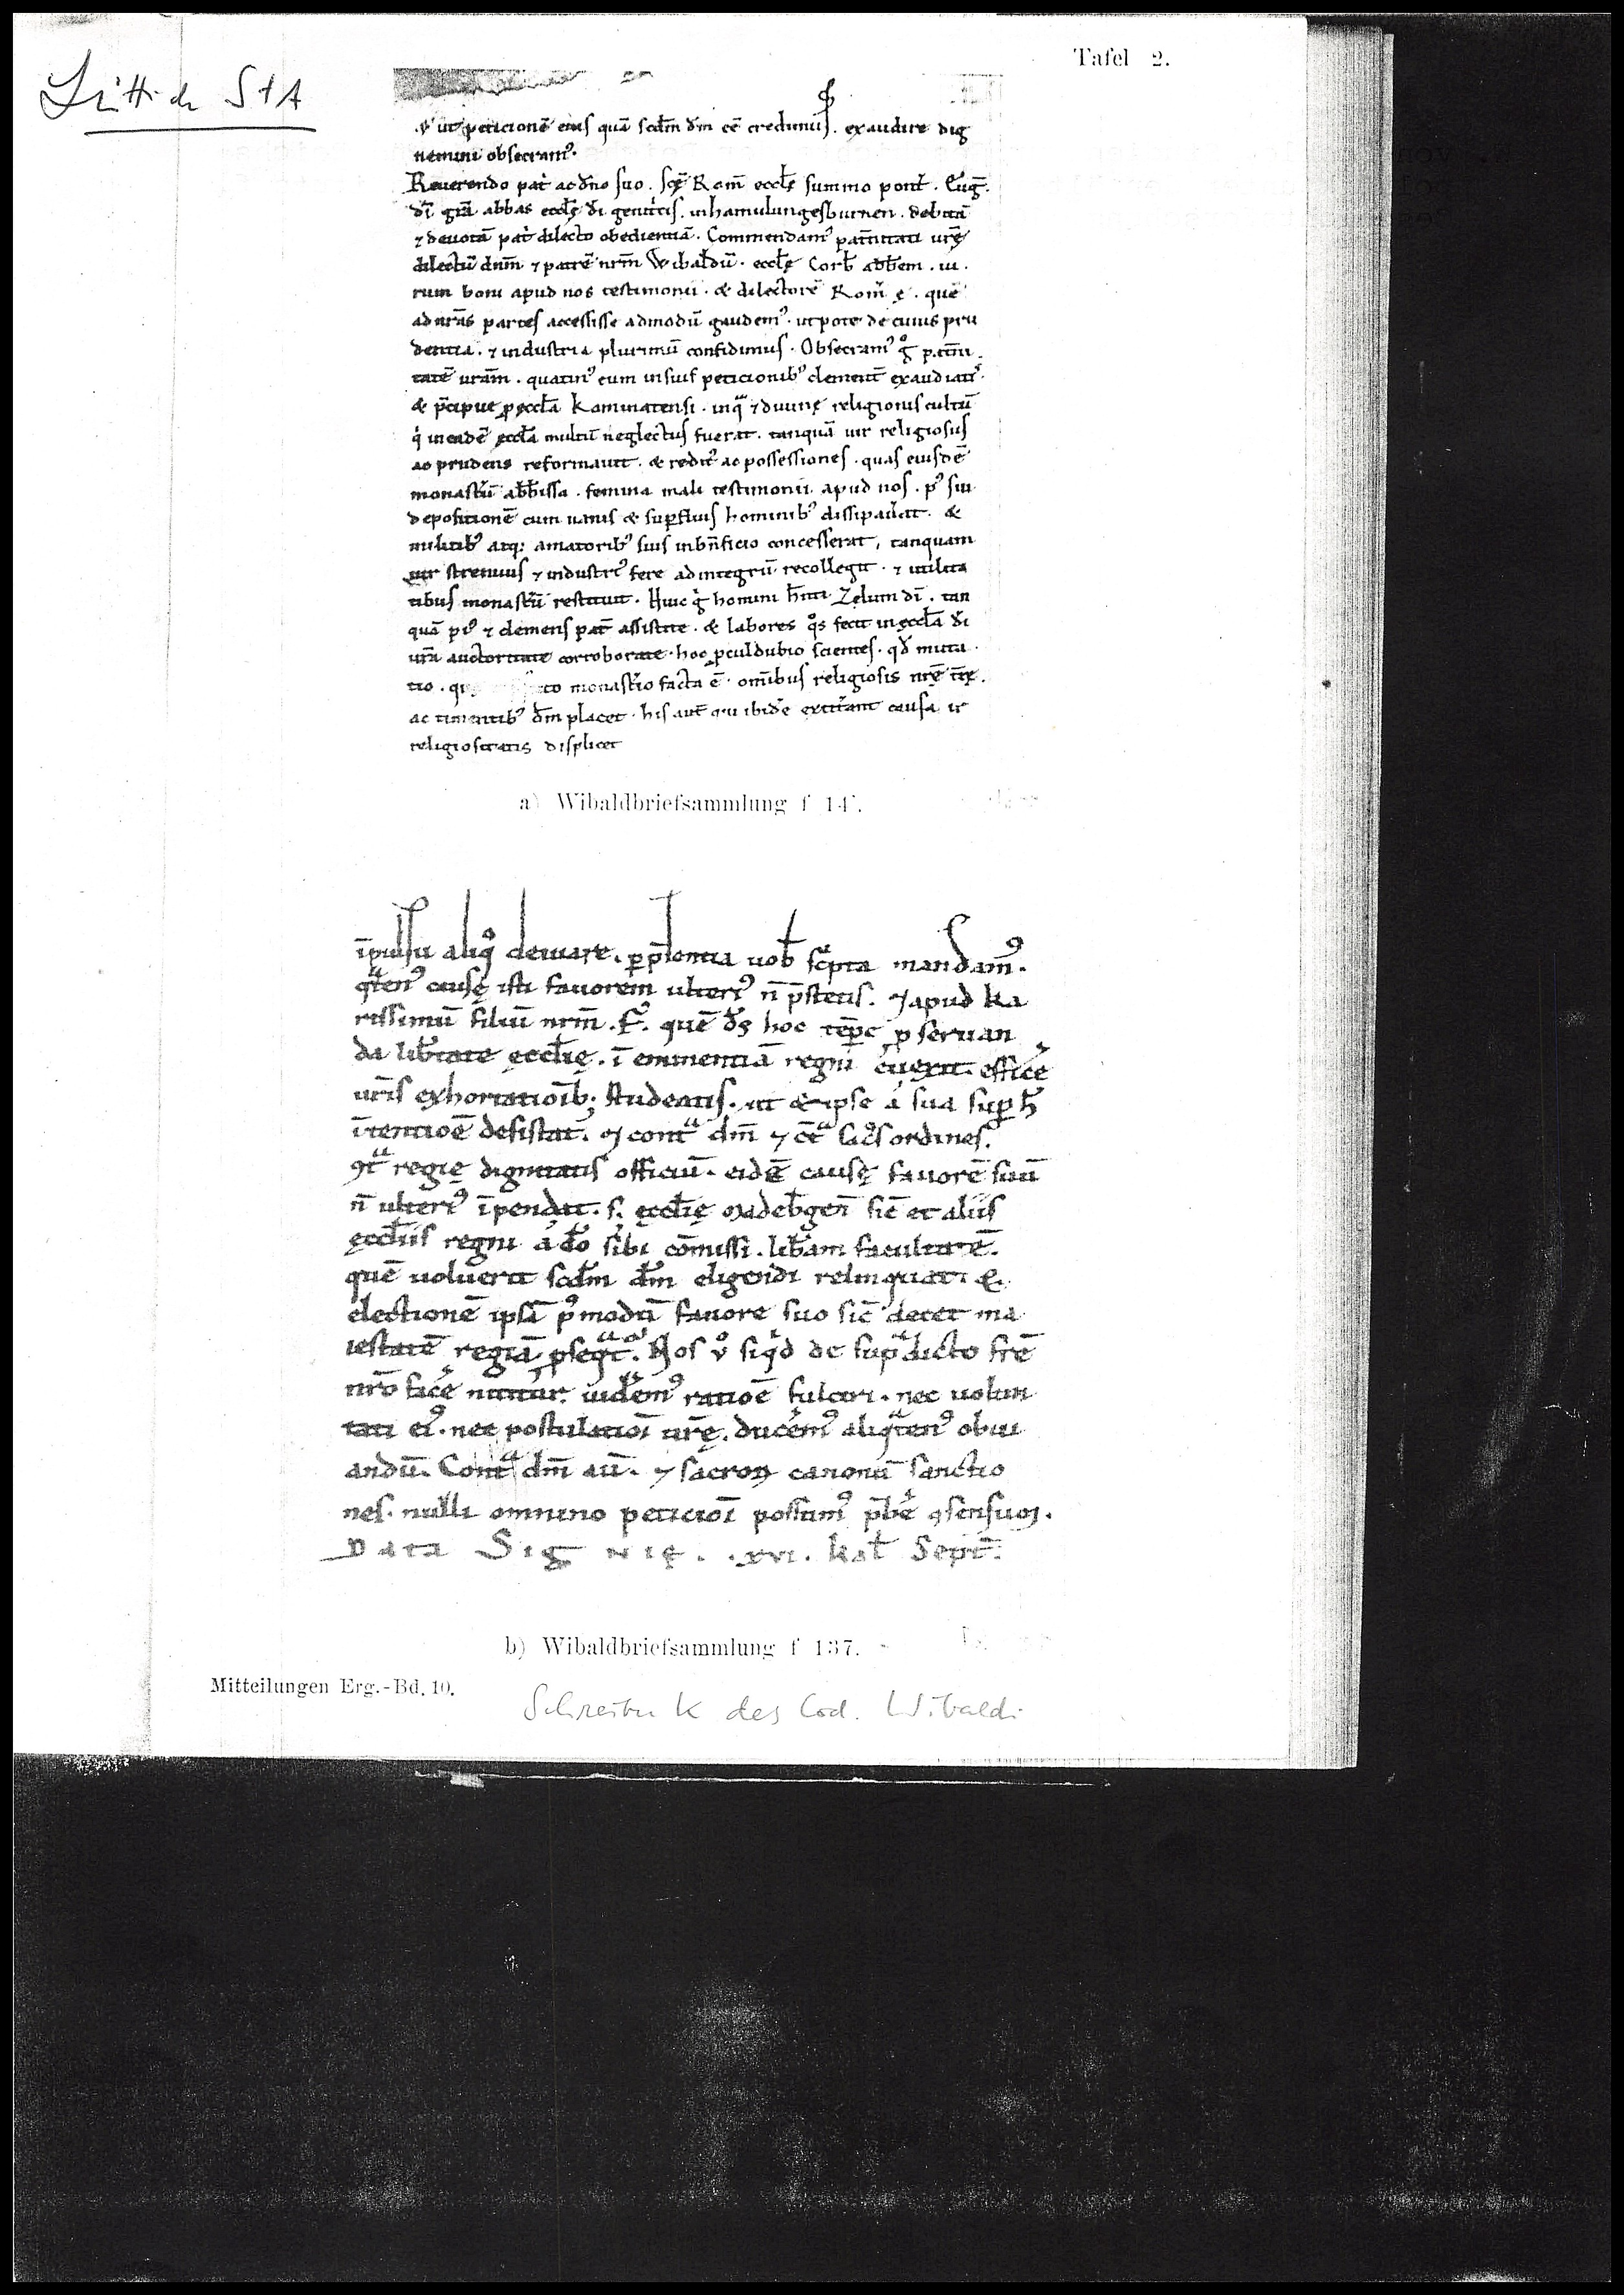 Tafel 2.
StA
ut peticionē eius quā scdm̄ dm̄ eē credimus. exaudire dig
nemini obsecram᷒.
Reuerendo pat̄ ac dn̄o suo. scę̄ Rom̄ eccłę summo pont̄. Euḡ.
dī gr̄a abbas eccłę dī genit̄cis. inhamulungesburnen. debitā
⁊ deuotā pat̄ dilecto obedientiā. Commendam᷒ pat̄nitati ur̄ę
dilectū dnm̄ ⁊ patrē nr̄m Wibaldū. eccłę Corb̄ abb̄em. ui.
rum boni apud nos testimonii. & dilectorē Rom̄ ę. quē
ad ur̄as partes accessisse admodū gaudem᷒. utpote de cuius pru
dentia. ⁊ industria plurimū confidimus. Obsecram᷒ g᷒ pat̄ni
tatē ur̄am. quatin᷒ eum insuis peticionib᷒ clement̄ exaudiatis.
& p̄cipue p̱ eccła Kaminatensi. inqͣ ⁊ diuinę religionis cultū
q̇ ineadē eccła multū neglectus fuerat. tanquā uir religiosus
ac prudens reformauit. & redit᷒ ac possessiones. quas eiusdē
monast̄ii abb̄issa. femina mali testimonii apud nos. p᷒ sui
depositionē cum uanis & sup̱fluis hominib᷒ dissipauat. &
militib᷒ atq; amatorib᷒ suis inbn̄ficio concesserat, tanquam
uir strenuus ⁊ industri᷒ fere ad integrū recollegit. ⁊ utilita
tibus monast̄ii restituit. Huic g᷒ homini hn̄ti Zelum dī. tan
quā pi᷒ ⁊ clemens pat̄ assistite. & labores q͛s fecit in eccła dī
ur̄a auctoritate corroborate. hoc p̱culdubio scientes. qd̄ muta
tio. monast̄io facta ē. om̄ibus religiosis
ac timentib᷒ dm̄ placet. his aut̄ qui ibidē extit̄ant causa ir
religiositatis displicet
a) Wibaldbriefsammlung f 14'.
īpulsu aliq͛ deuiare. p̱p̄sentia uob̄ sc̄pta mandam᷒.
qͣten᷒ causę isti fauorem ulteri᷒ n̄ p̄stetis. ⁊ apud ka
rissimū filiū nr̄m. F. quē ds̄ hoc tēpe p̱ seruan
da lib̄tate eccłię. ī eminentiā regni euexit. efficē
ur̄is exhortatiōib; studeatis. ut & ipse a sua sup̱ h̄
ītentiōe desistat. ⁊ contͣ dm̄ ⁊ cͣ sac͛s ordines.
ꝯtͣ regię dignitatis officiū. eidē causę fauorē suū
n̄ ulteri᷒ īpendat. s; eccłię madeb̄gen̄ sic̄ et aliis
eccłiis regni a dō sibi cōmissi. lib̄am facultatē.
quē uoluerit scdm̄ dm̄ eligendi relinquat. &
electionē ipsā p᷒modū fauore suo sic̄ decet ma
iestatē regiā p̱seqͣt̄. Nos u͛ siqd̄ de supͣdicto fr̄e
nr̄o facē nitūtur. uid̄em᷒ ratiōe fulciri. nec uolun
tati ei᷒. nec postulatiōi ur̄ę. ducēm᷒ aliqͣten᷒ obui
andū. Contͣ dm̄ aū. ⁊ sacroꝝ canonū sanctio
nes. nulli omnino peticiōi possum᷒ p̄bē ꝯsensum.
Data SigNię. .xvi. kal̄ Sept̄.
b) Wibaldbriefsammlung f 137.
Mitteilungen Erg.-Bd. 10.
Schreiber K des Cod. Wibaldi